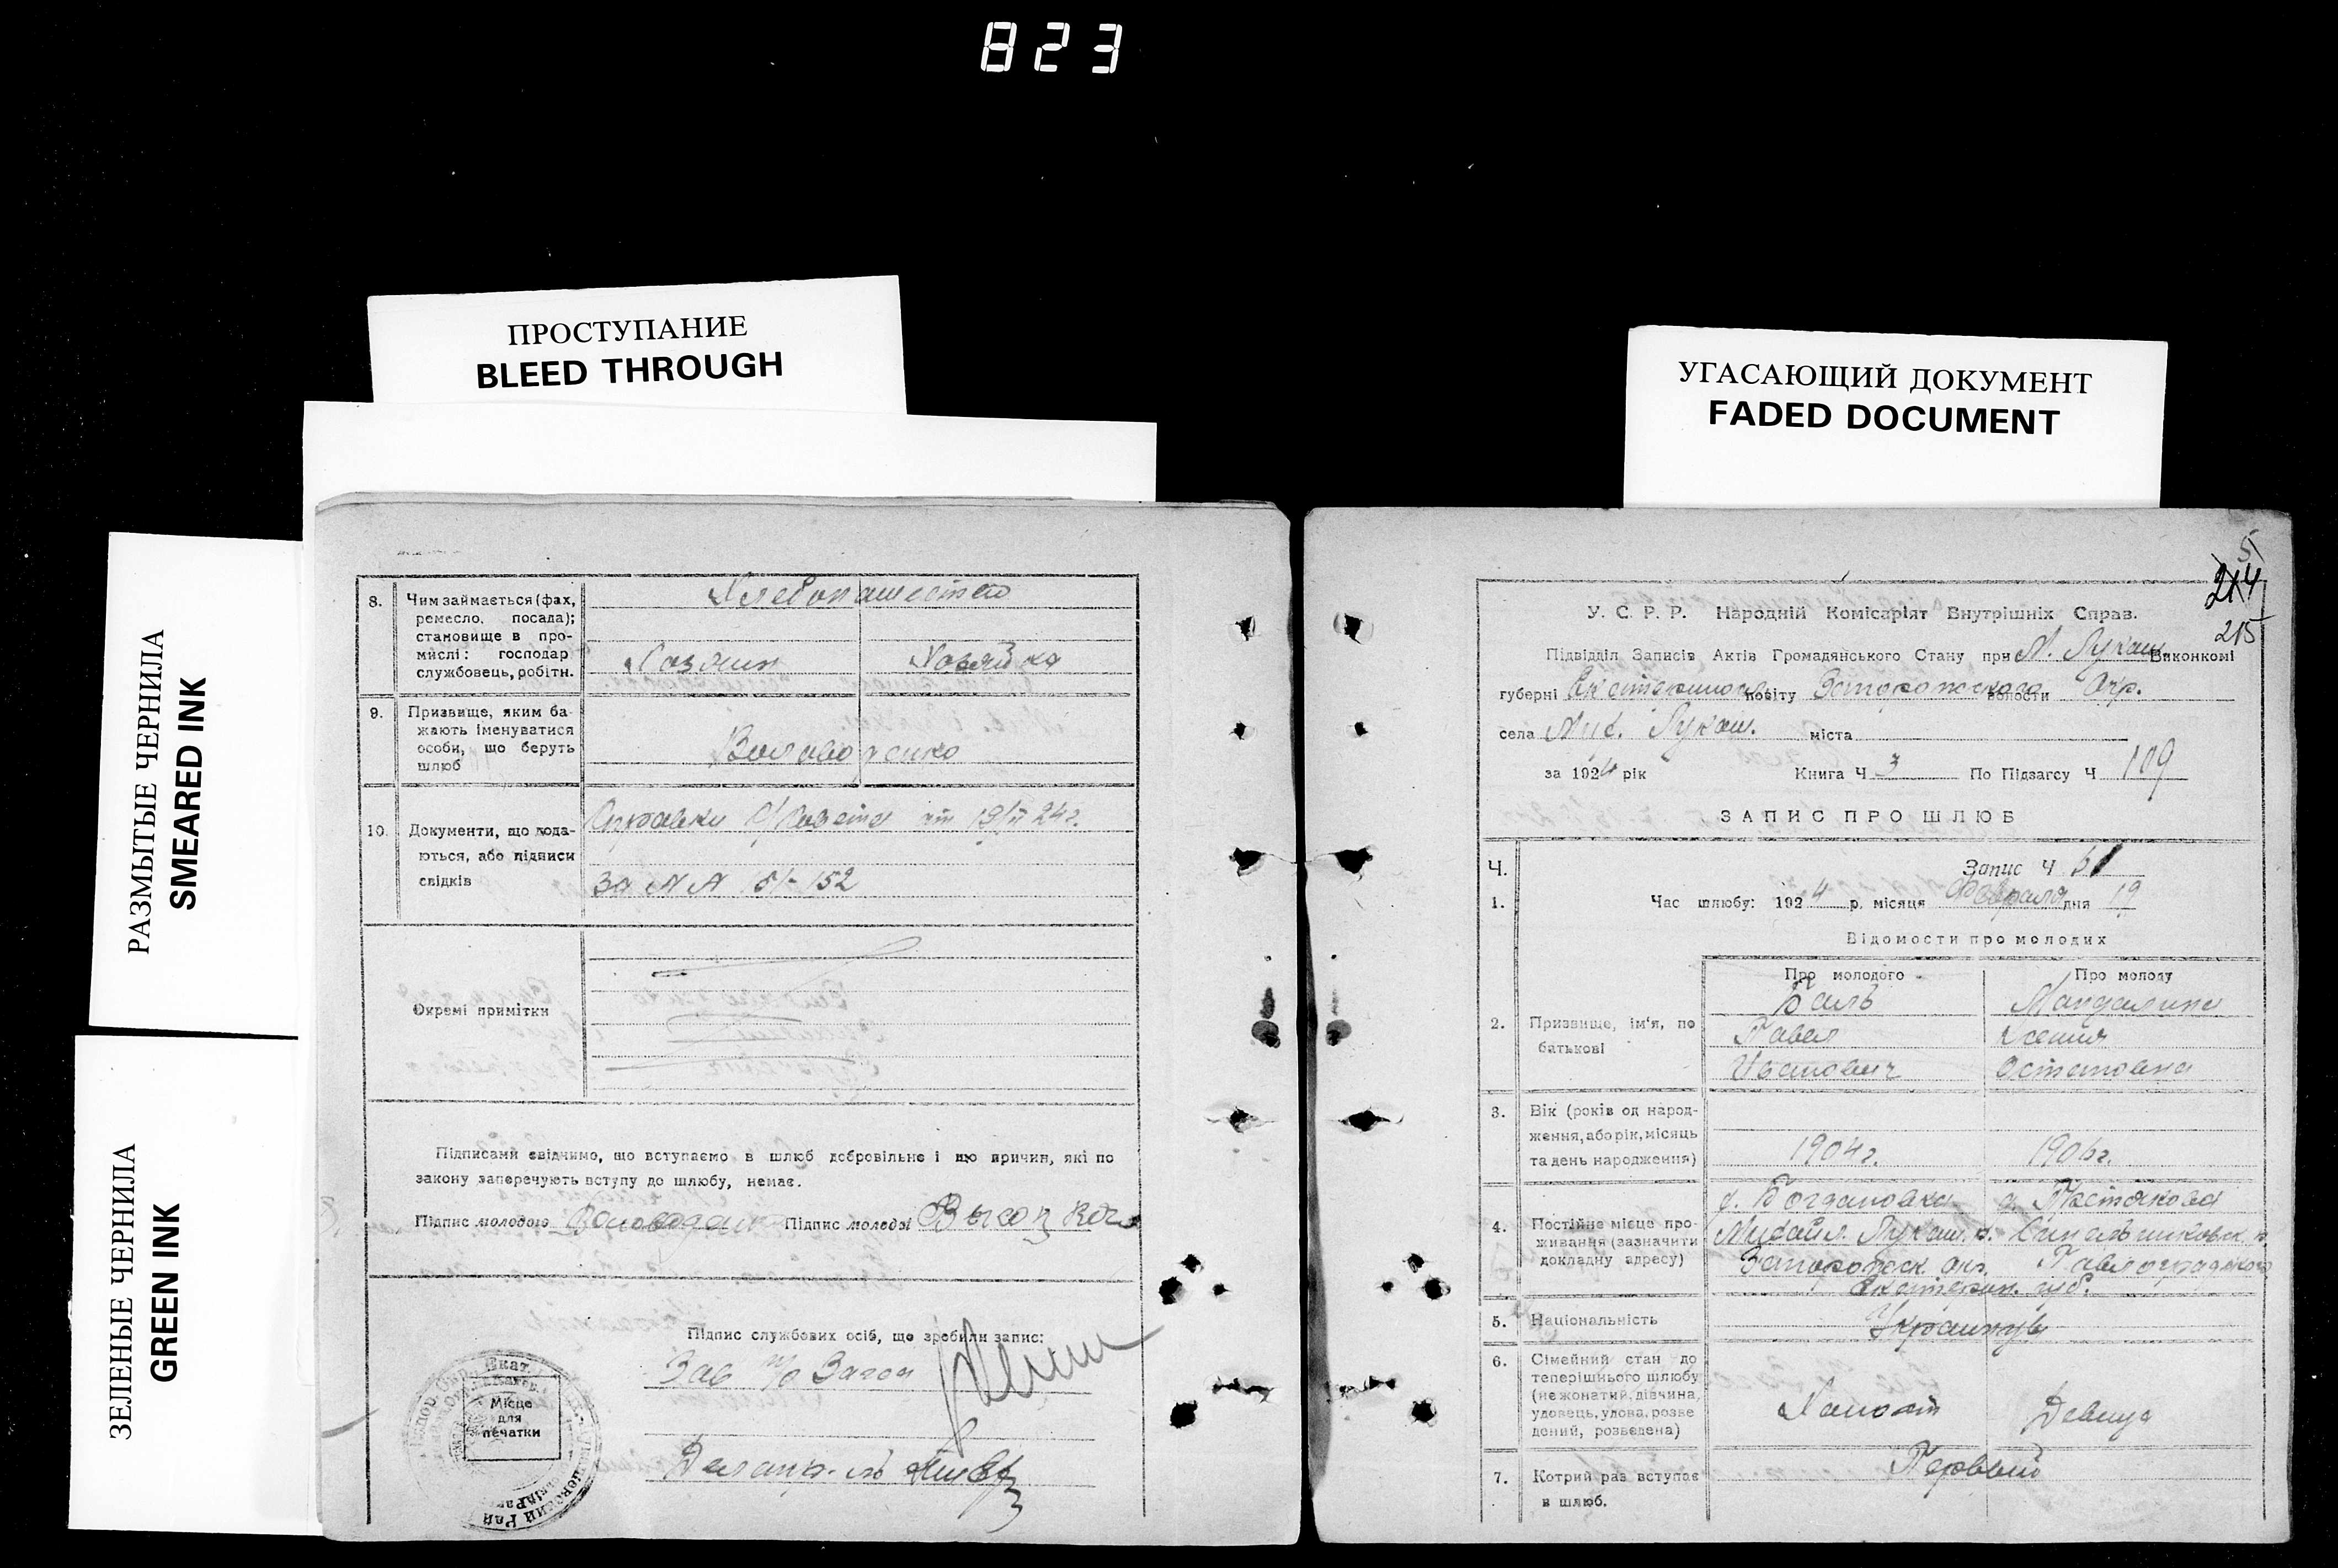 823
ПРОСТУПАНИЕ
BLEED THROUGH
УГАСАЮЩИЙ ДОКУМЕНТ
FADED DOCUMENT
РАЗМЫТЫЕ ЧЕРНИЛА
SMEARED INK
ЗЕЛЕНЫЕ ЧЕРНИЛА
GREEN INK
8. Чим займається (фах, ремесло, посада); становище в промислі: господар службовець, робітн.
Хлебопашество
Хозяин
Хозяйка
9. Призвище, яким бажають іменуватися особи, що беруть шлюб
10. Документи, що подаються, або підписи свідків
Справки С/Совета от 19/II 24 г.
за NN 151-152
Окремі примітки
Підписами свідчимо, що вступаємо в шлюб добровільне і що причин, які по
закону заперечують вступу до шлюбу, немає.
Підпис молодого
Підпис молодої
Підпис службових осіб, що зробили запис:
Зав п/о Загса
Місце
для
печатки
Делопр-ль
5
214
215
У. С. Р. Р. Народній Комісаріят Внутрішніх Справ.
Підвідділ Записів Актів Громадянського Стану при М. Лукаш. Виконкомі
губерні Екатериносл. повіту Запорожского волости Окр.
села Мих. Лукаш. міста
за 1924 рік Книга Ч 3 По Підзагсу Ч 109
ЗАПИС ПРО ШЛЮБ
Ч. Запис Ч
1. Час шлюбу: 1924 р. місяця Февраля дня 19
Відомости про молодих
Про молодого
Про молоду
2. Призвище, ім'я, по батькові
Баль
Павел
Иванович
Ксения
Остаповна
3. Вік (років од народження, або рік, місяць та день народження)
1904 г.
1906 г.
4. Постійне місце проживання (зазначити докладну адресу)
д. Богдановка
Михайл. Лукаш. р.
Запорожск. окр.
Синельниковск. р.
Павлоградского
Екатерин. губ.
5. Національність
Украинцы
6. Сімейний стан до теперішнього шлюбу (нежонатий, дівчина, удовець, удова, розведений, розведена)
Холост
Девица
7. Котрий раз вступає в шлюб.
Первый